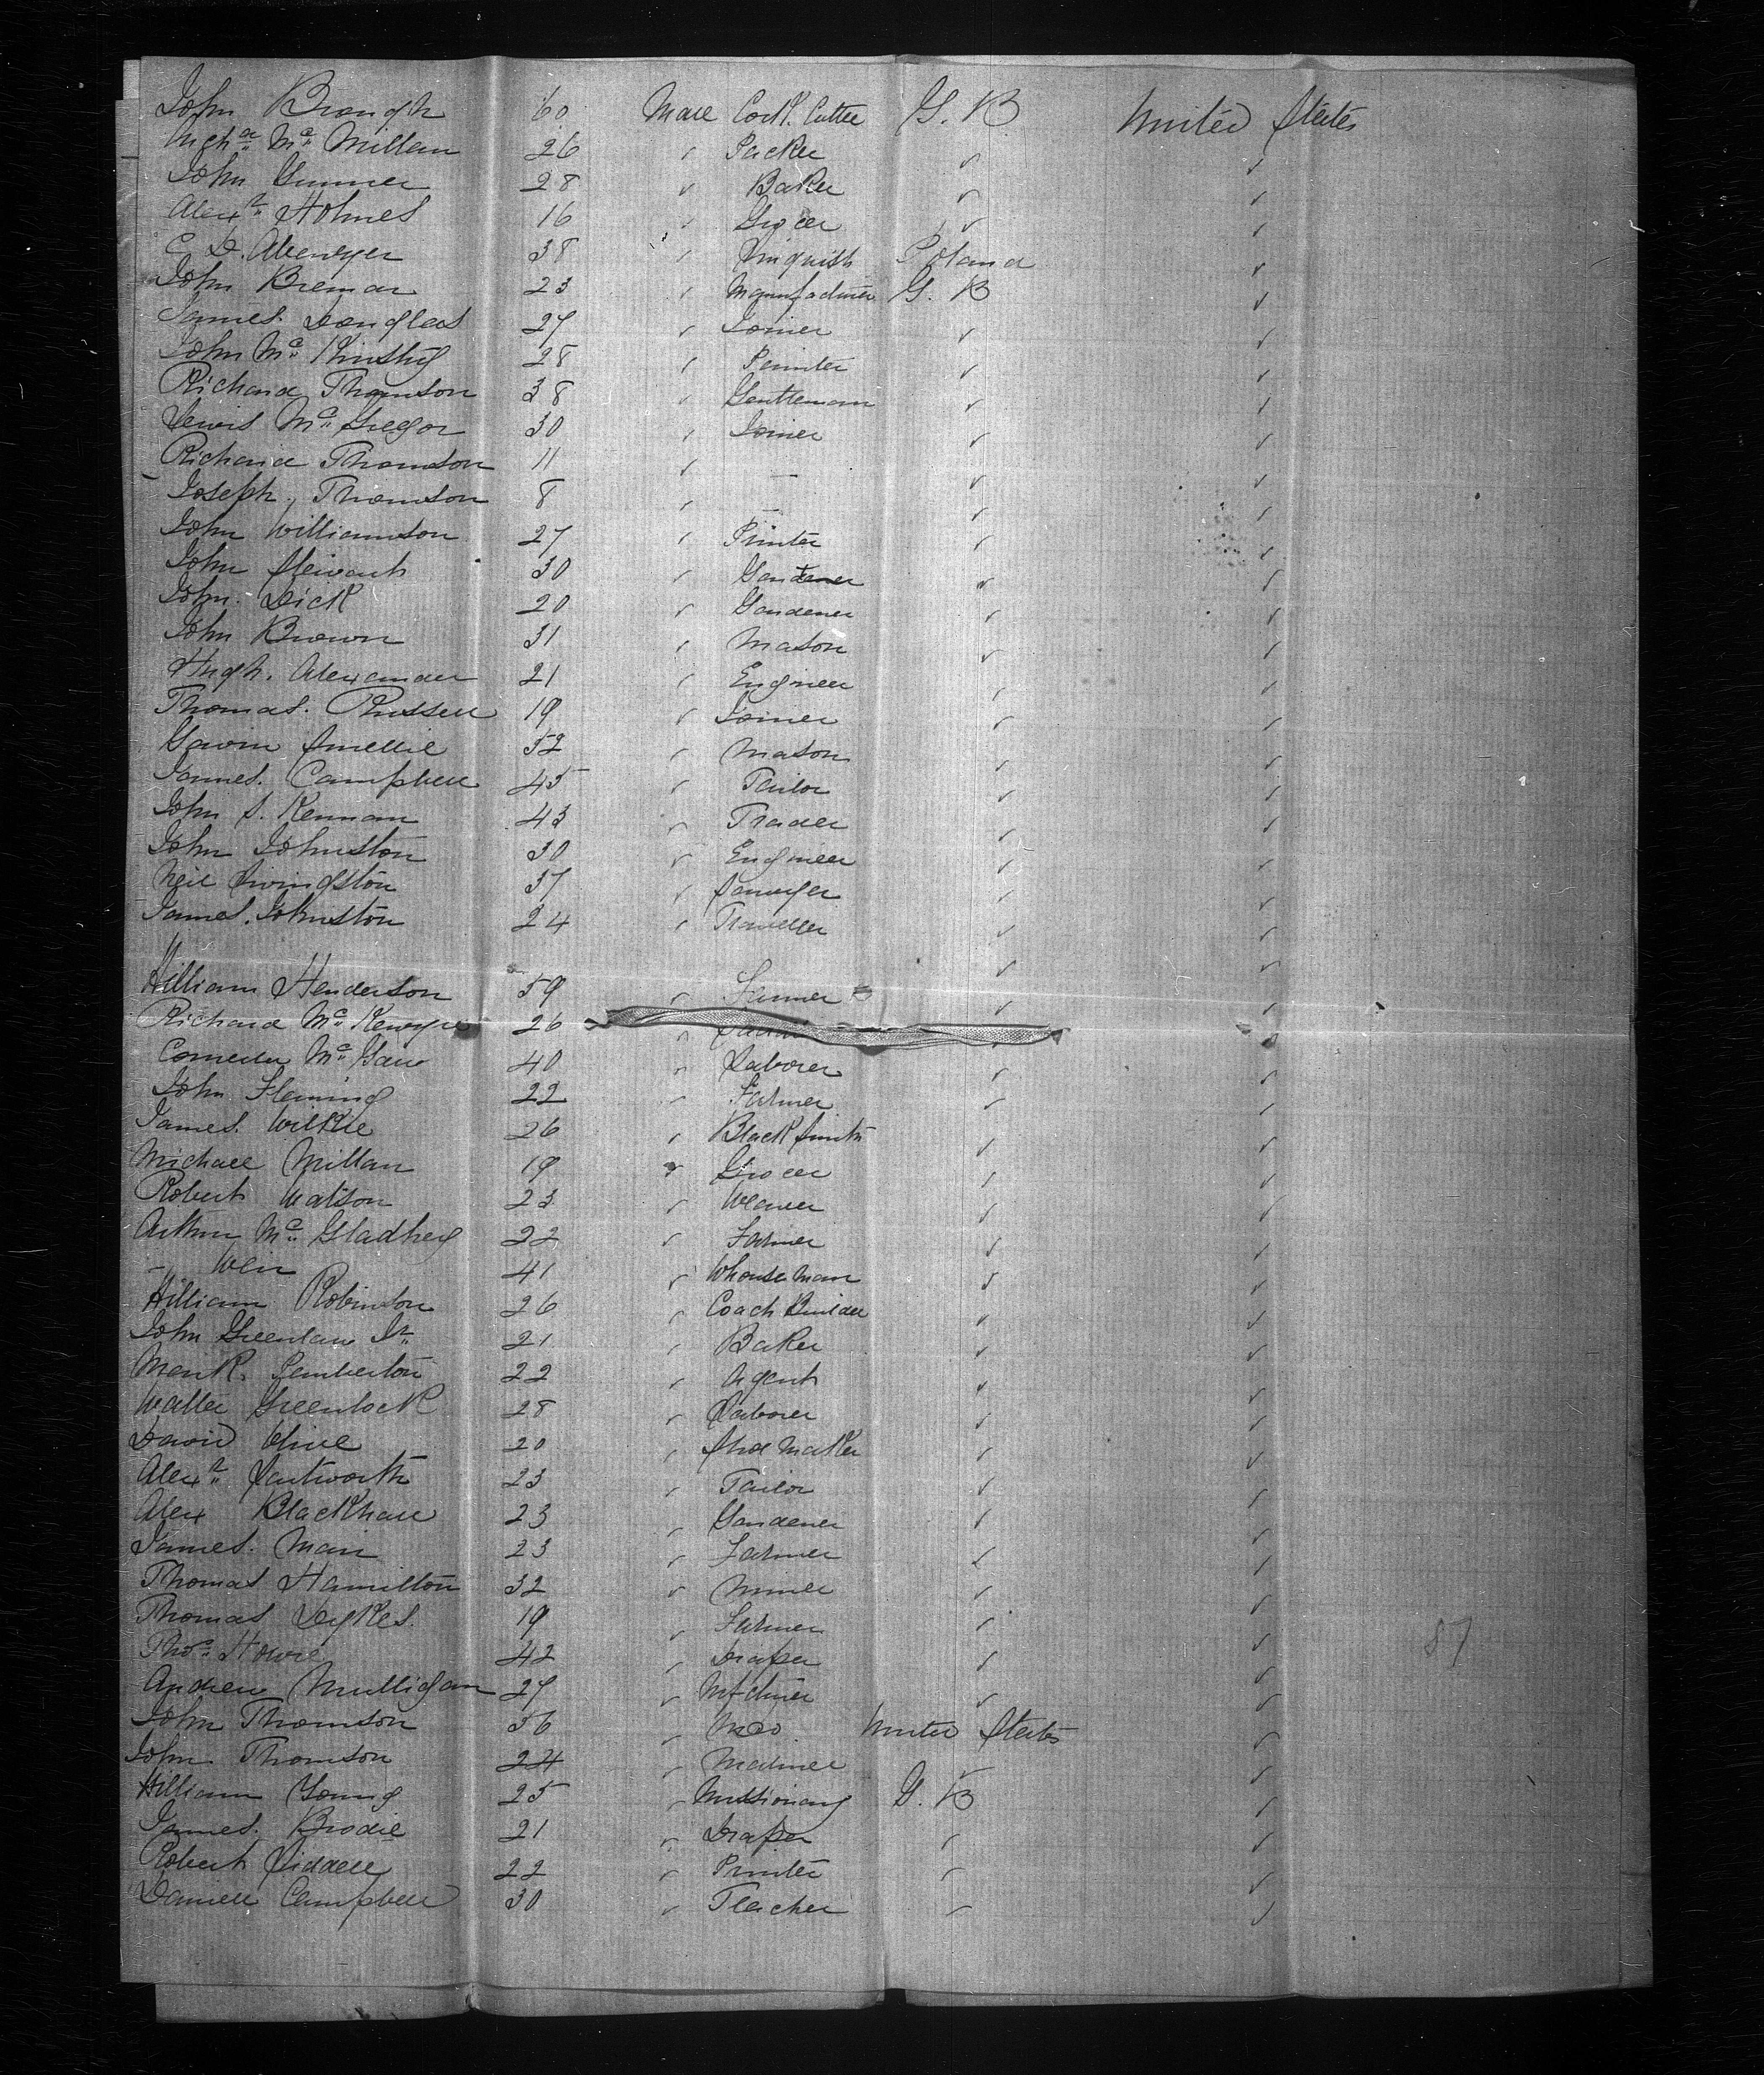 John Brough 60 Male Cork Cutter G. B United States
Mich.a Mc Millan 26 " Packer " "
John Gunner 28 " Baker " "
Alexr Holmes 16 " Grocer " "
C. D. 38 " Linquish Poland "
John Bremar 23 " Manufacturer G. B "
James. Douglas 27 " Joiner " "
John Mc 28 " Painter " "
Richard Thomson 38 " Gentleman " "
Lewis Mc Gregor 30 " Joiner " "
Richard Thomson 11 " — " "
Joseph. Thomson 8 " — " "
John Williamson 27 " Printer " "
John Stewart 30 " Gardener " "
John. Dick 20 " Gardener " "
John Brown 31 " Mason " "
Hugh. Alexander 21 " Engineer " "
Thomas. Russell 19 " Joiner " "
Gavin Smellie 52 " Mason " "
James. Campbell 45 " Tailor " "
John S. Kennan 43 " Trader " "
John Johnston 30 " Engineer " "
Neil Livingston 37 " Sawyer " "
James. Johnston 24 " Traveller " "
William Henderson 59 " Farmer " "
Richard Mc 26 " " "
Mc 40 " Laborer " "
John Fleming 22 " Farmer " "
James. Wilkie 26 " Black Smith " "
Michael Millan 19 " Grocer " "
Robert Watson 23 " Weaver " "
Arthur Mc Gladhey 22 " Farmer " "
— Weir 41 " Whouse Man " "
William Robinson 26 " Coach Builder " "
John Greenlaw Jr 21 " Baker " "
Mark. Pemberton 22 " Agent " "
Walter Greenlock 28 " Laborer " "
David 20 " Shoe Maker " "
Alexr 23 " Tailor " "
Alex Blackhall 23 " Gardener " "
James. Main 23 " Farmer " "
Thomas Hamilton 32 " Miner " "
Thomas Dykes. 19 " Farmer " "
Thos Howie 42 " Draper " "
Andrew Mulligan 27 " Mfcturer " "
John Thomson 36 " United States "
John Thomson 24 " Mariner " "
William Young 25 " Missionary G. B "
James. Brodie 21 " Draper " "
Robert Liddell 22 " Printer " "
Daniel Campbell 30 " Teacher " "
87